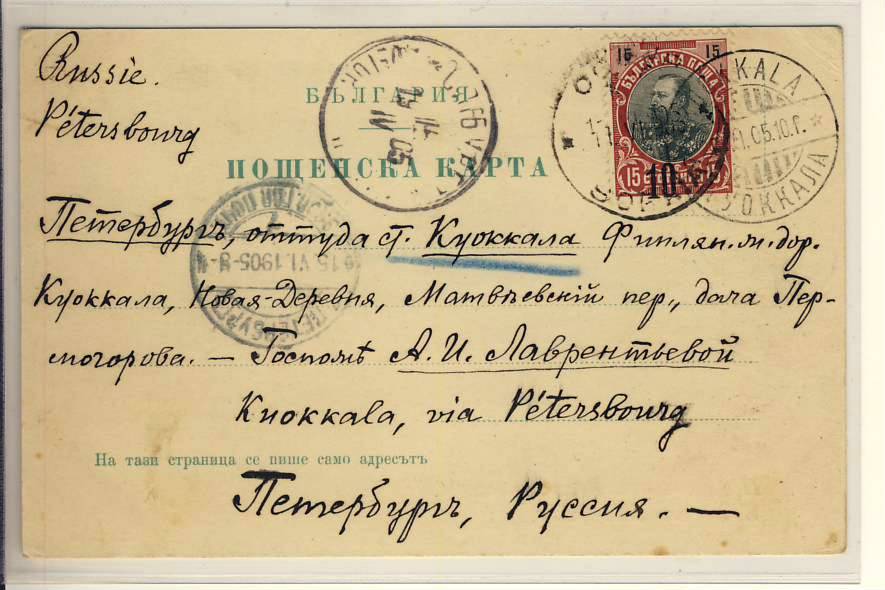 Russie.
Pétersbourg
БЪЛГАРИЯ
ПОЩЕНСКА КАРТА
15 15
БЪЛГАРСКА ПОЩА
15 15
10
KKALA
КУОККАЛА
15.VI.1905
Петербургъ, оттуда ст. Куоккала Финлян. ж. дор.
Куоккала, Новая-Деревня, Матвѣевскій пер., дача Пер-
могорова. — Госпожѣ А. И. Лаврентьевой
Kuokkala, via Pétersbourg
На тази страница се пише само адресътъ
Петербургъ, Руссия. —